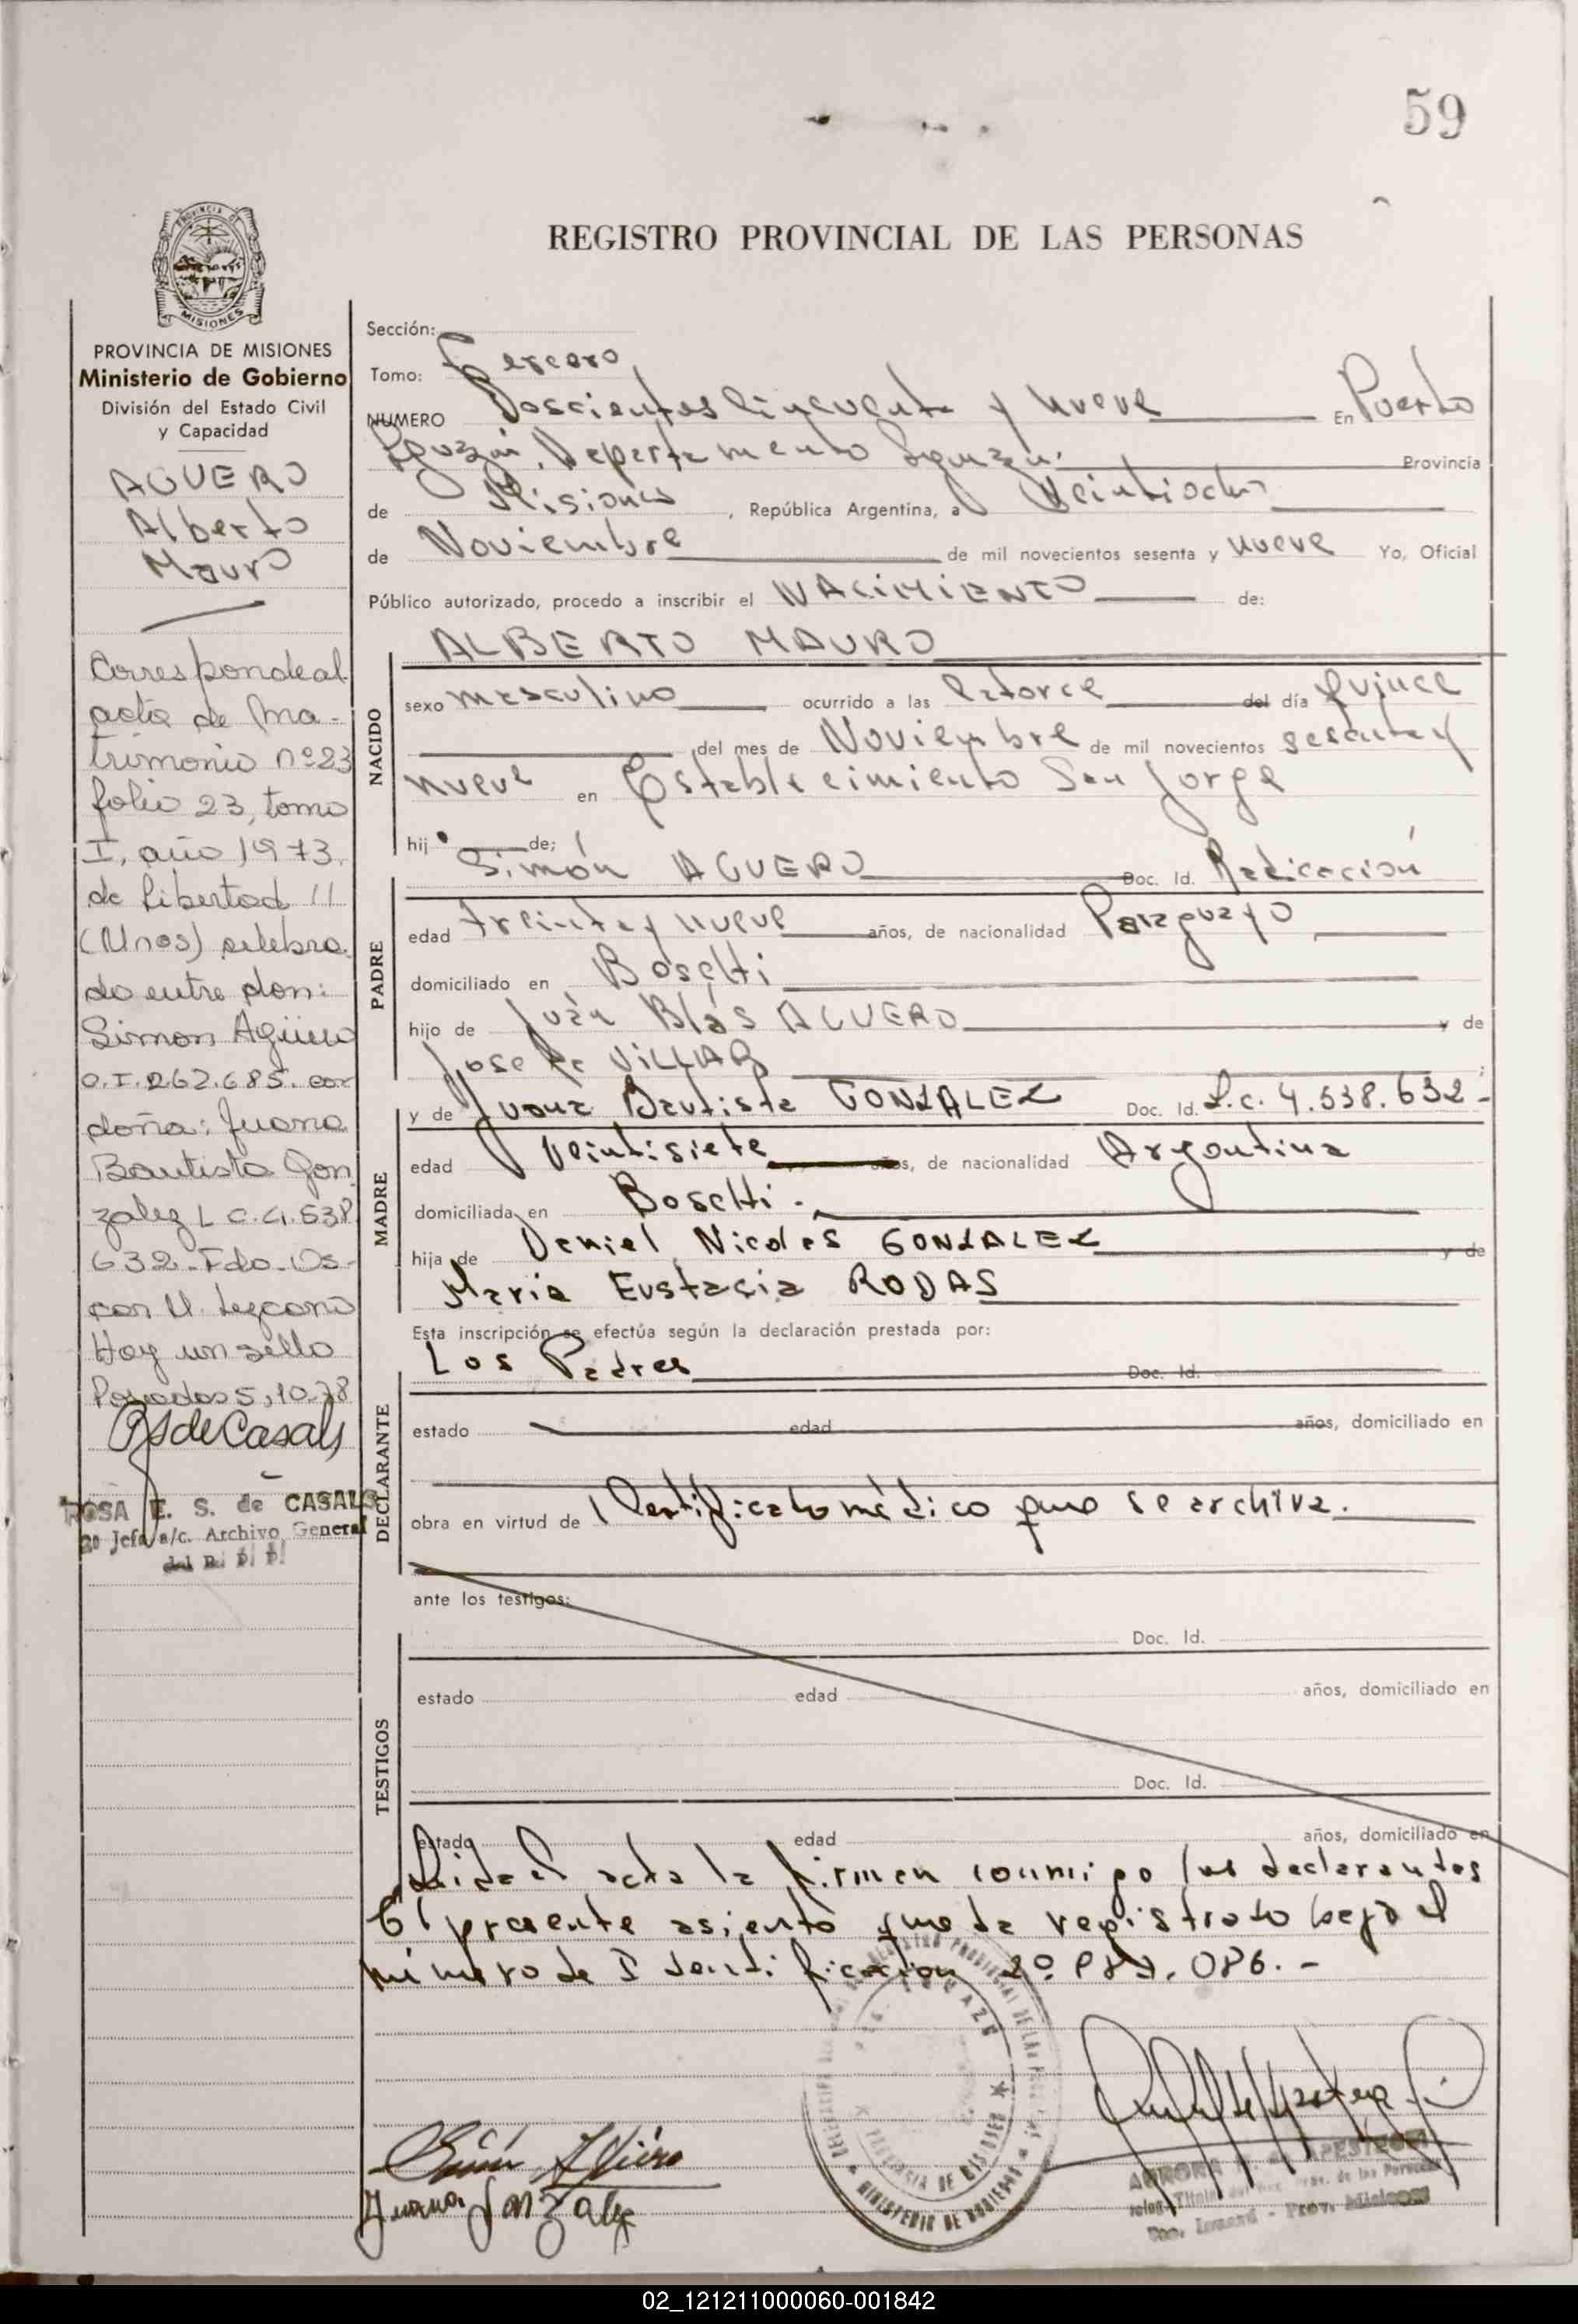 59
REGISTRO PROVINCIAL DE LAS PERSONAS
PROVINCIA DE
MISIONES
PROVINCIA DE MISIONES
Ministerio de Gobierno
División del Estado Civil
y Capacidad
AGUERO
Alberto
Mauro
Corresponde al
acta de Ma-
trimonio nº 23
folio 23, tomo
I, año 1973,
de Libertad 11
(Mnes) celebra
do entre don:
Simon Agüero
O.I. 262.685. con
doña: Juana
Bautista Gon
zalez L C. 4.538
632 - Fdo - Os-
car U. Lezcano
Hay un sello
Posadas 5, 10-78
RSdeCasals
ROSA E. S. de CASALS
2º Jefe a/c. Archivo General
del R. P. P.
Sección:
Tomo: Tercero
NUMERO Doscientos Cincuenta y Nueve En Puerto
Iguazú, Departamento Iguazú. Provincia
de Misiones, República Argentina, a Veintiocho
de Noviembre de mil novecientos sesenta y nueve Yo, Oficial
Público autorizado, procedo a inscribir el NACIMIENTO de:
ALBERTO MAURO
NACIDO
sexo masculino ocurrido a las Catorce del día Quince
del mes de Noviembre de mil novecientos sesenta y
nueve en Establecimiento San Jorge
hijo de;
Simón AGUERO Doc. Id. Radicación
PADRE
edad treinta y nueve años, de nacionalidad Paraguayo
domiciliado en Bosetti
hijo de Juan Blás AGUERO y de
Josefa VILLAR ;
y de Juana Bautista GONZALEZ Doc. Id. L.C. 4.538.632-
MADRE
edad Veintisiete años, de nacionalidad Argentina
domiciliada en Bosetti.
hija de Daniel Nicolás GONZALEZ y de
Maria Eustacia RODAS
Esta inscripción se efectúa según la declaración prestada por:
Los Padres Doc. Id.
DECLARANTE
estado edad años, domiciliado en
obra en virtud de Certificado médico que se archiva.
ante los testigos:
Doc. Id.
TESTIGOS
estado edad años, domiciliado en
Doc. Id.
estado edad años, domiciliado en
Leida el acta la firman conmigo los declarantes
El presente asiento queda registrado bajo el
número de Identificación 20. 086.-
Simón Agüero
Juana Gonzalez
PROVINCIA DE MISIONES
MINISTERIO DE GOBIERNO
AURORA
Prov. Misiones
02_121211000060-001842